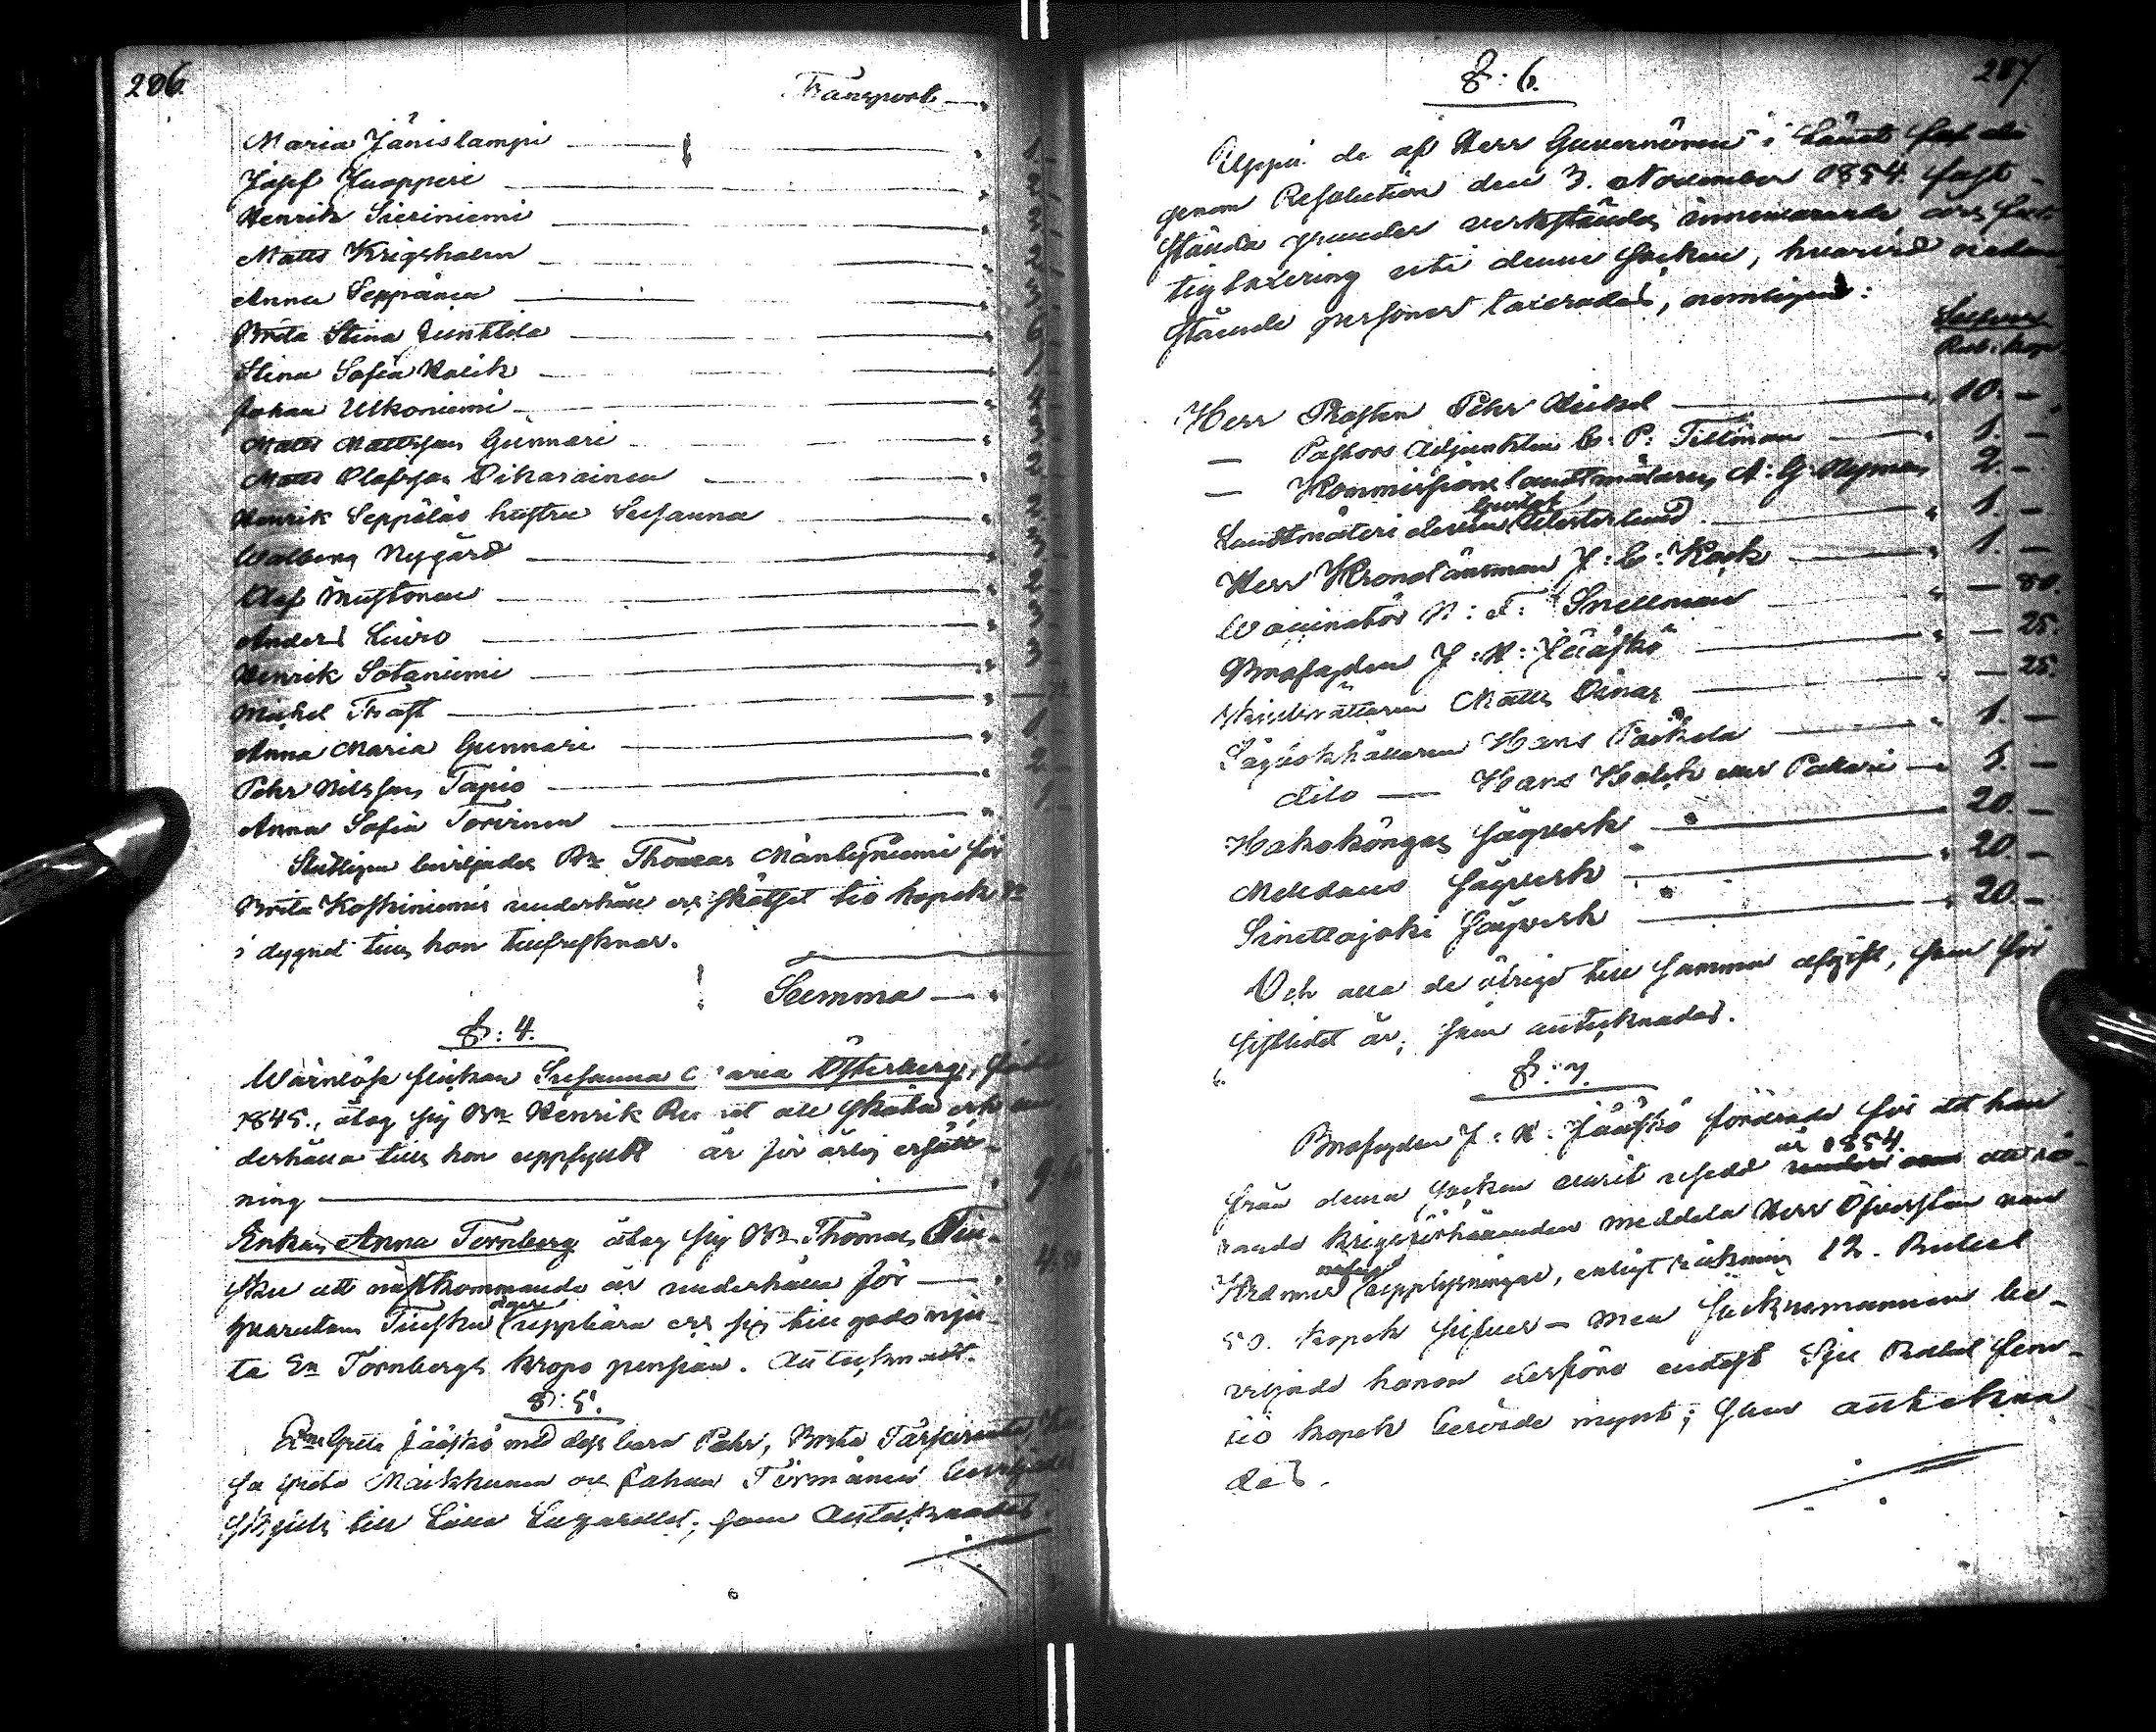 206.
Transport
Maria Jänislampi 1.
Josef Juopperi 2.
Henrik Sieriniemi 2.
Matts Krigsholm 2.
Anna Seppänen 3.
Brita Stina Junttila 6.
Stina Sofia Kolik 1.
Johan Ulkoniemi 4.
Matts Mattsson Gunnari
Matts Olofsson Oikarainen 2.
Henrik Seppäläs hustru Susanna 2.
Walborg Nygård 3.
Olof Mustonen 2.
Anders Luiro 3.
Henrik Sotaniemi 3.
Michel Frost
Anna Maria Gunnari 1.
Pehr Nilsson Tapio 2.
Anna Sofia Torvinen 1.
Slutligen beviljades Bn Thomas Mäntyniemi för
Brita Koskiniemis underhåll och skötsel tio kopek Sr
i dygnet tills hon tillfrisknar.
Summa
§: 4.
Wärnlösa flickan Susanna Maria Österberg, född
1845., åtog sig Bn Henrik att sköta och un-
derhålla tills hon uppfyllt år för årlig ersätt-
ning 9:60
Enkan Anna Tornberg åtog sig Bn Thomas Tiu-
sku att nästkommande år underhålla för 4:50
hvarutom Tiusku äger uppbära och sig till godo nju-
ta En Tornbergs krops pension. Antecknadt.
§: 5.
Greta Jääskö med dess barn Pehr, Brita
Greta Maikkunen och Johan Törmänen beviljades
skjuts till Läne Lazarettet; som antecknades.
§: 6.
207
Uppå de af Herr Guvernören i Länet
genom Resolution den 3. November 1854 fast-
stälda grunder verkställdes innevarande års fat-
tigtaxering uti denna socken, hvarvid nedan-
stående personer taxerades, nemligen:
Silfver
Rub: kop:
Herr Prosten Pehr Heikel 10. —
— Pastors Adjunkten C: P: Tillman 1. —
— Kommissions landtmätaren A: G: Nyman 2. —
Landtmäteri eleven Gustaf Westerlund 1. —
Herr Kronolänsman J: C: Kock 1. —
Waccinatör N: F: Snellman — 80.
Brofogden J: H: Jääskö — 25.
Matts Oinas — 25.
Sågbokhållaren Hans Paikela 1. —
dito — Hans Kolik eller Pallari 1. —
Hakokönges sågverk 20. —
Meldaus sågverk 20. —
Sinettäjoki sågverk 20. —
Och alla de öfriga till samma afgift, som för
sistlidet år; som antecknades.
§: 7.
Brofogden J: H: Jääskö fordrade för det han
från denna socken varit utsedd år 1854 att rö-
rande krigsförhållanden meddela Herr Öfversten von
Kræmer nödiga upplysningar, enligt räkning 12. Rubel
50. kopek silfver – men sockenemännen be-
viljade honom derföre endast Sju Rubel fem-
tio kopek berörde mynt; som antekna
des.